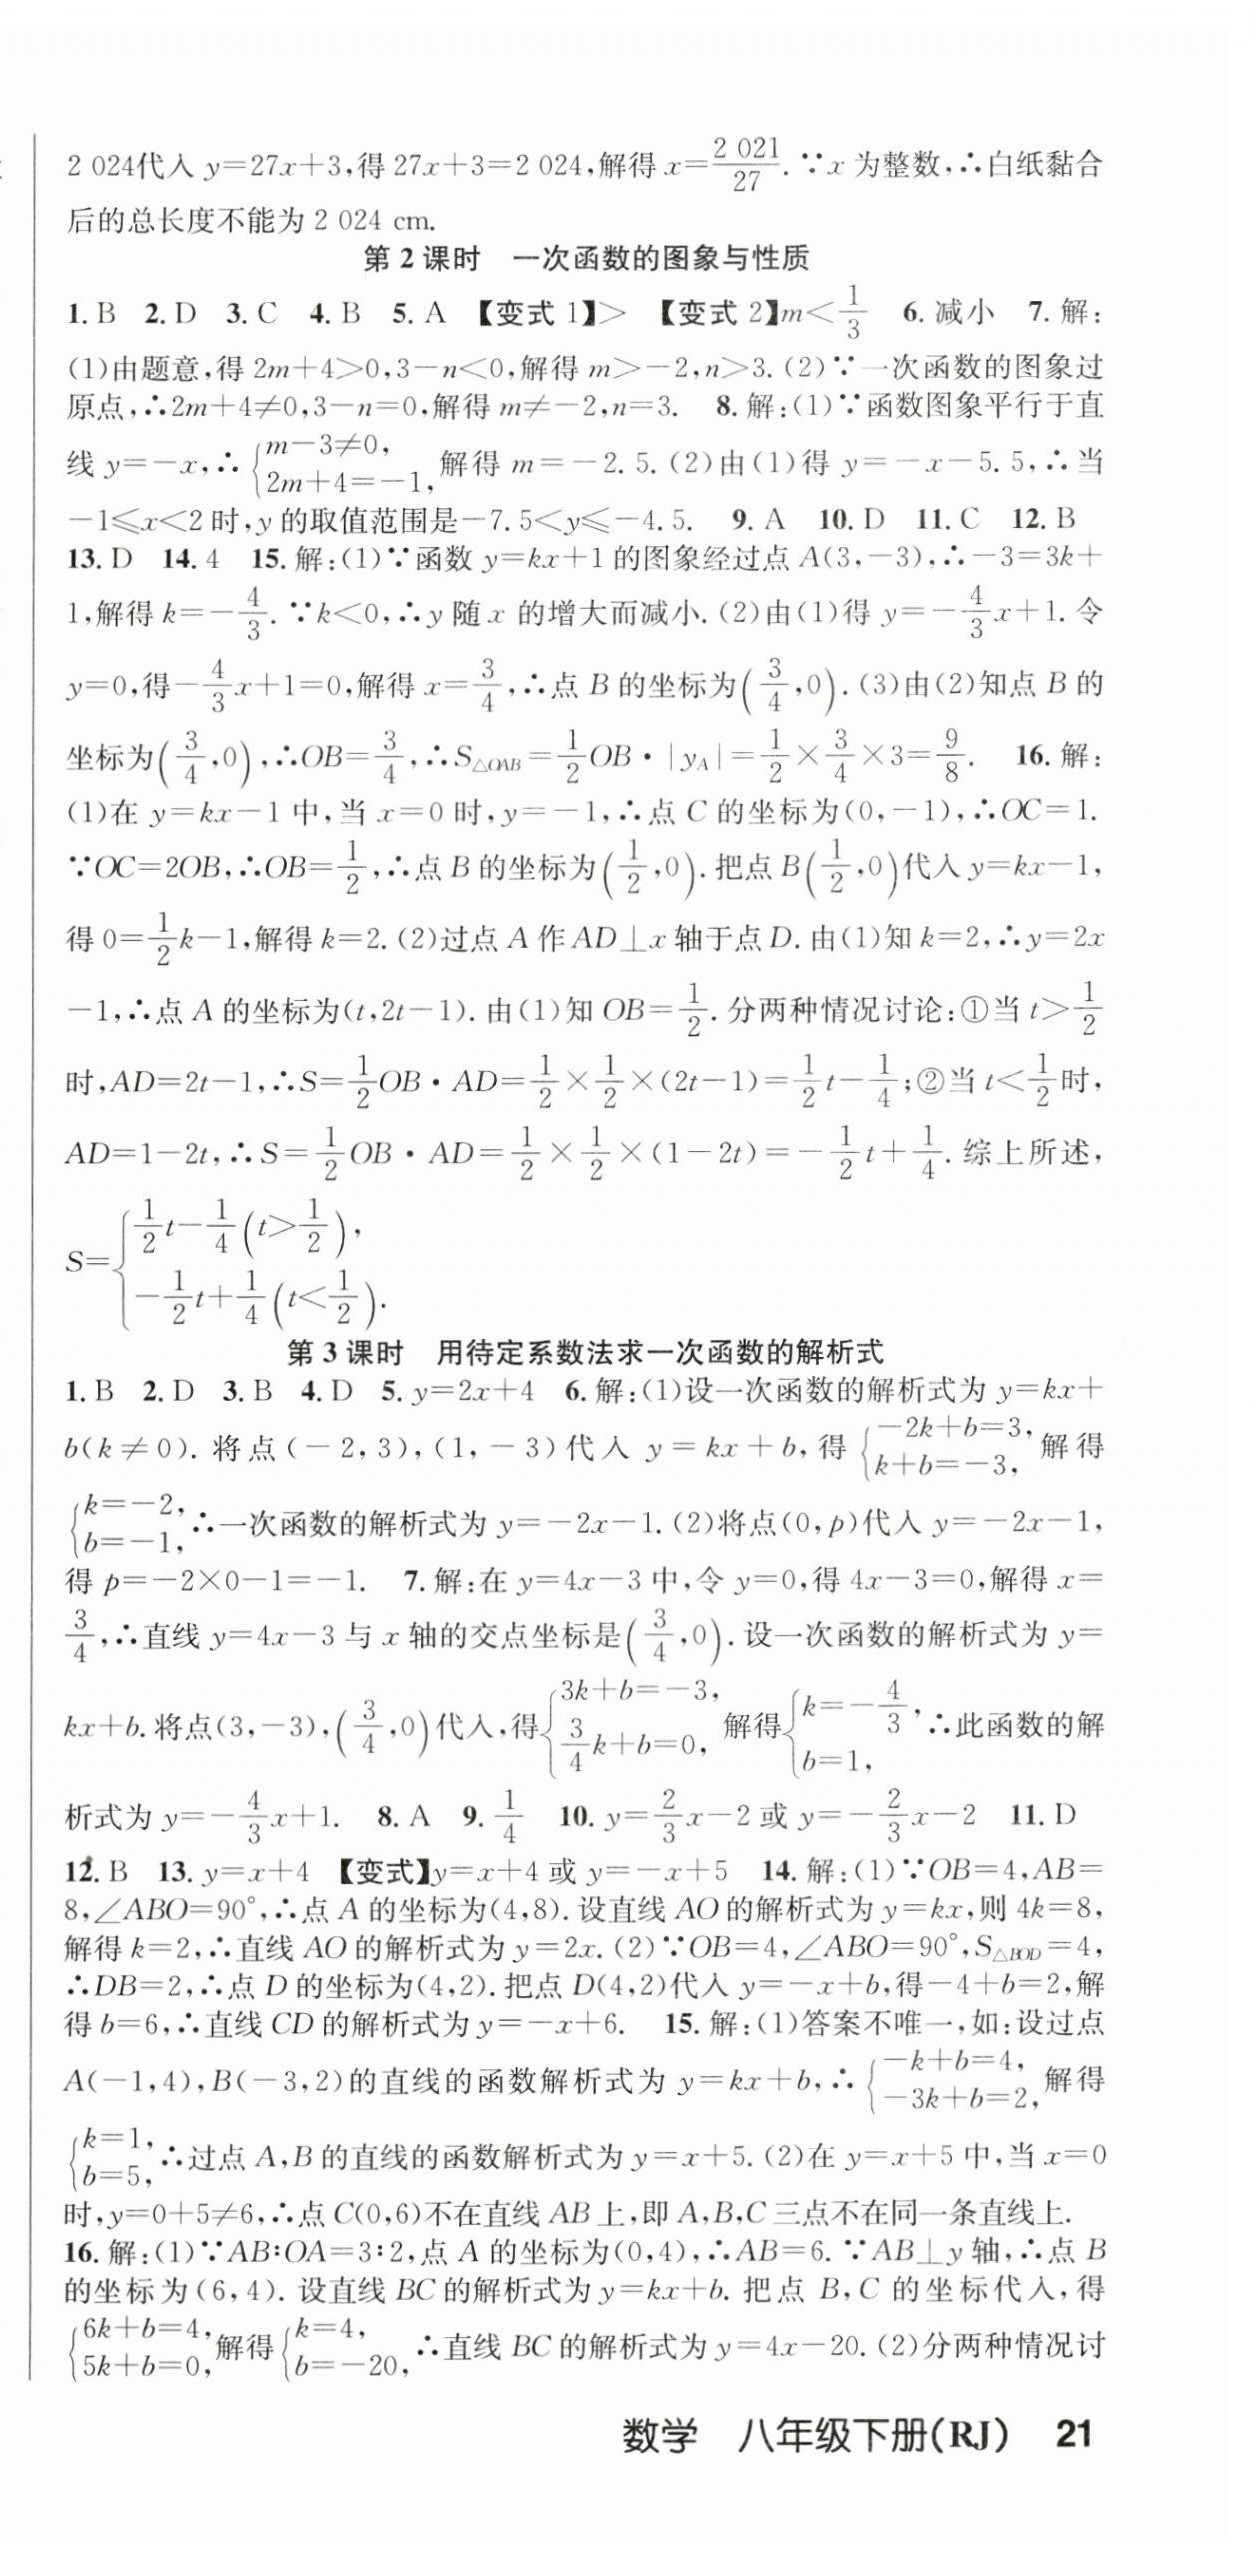 2 024代入 y=27x+3,得 27x+3=2 024,解得 x=2 021/27.∵x 为整数,∴白纸黏合
后的总长度不能为 2 024 cm.
第 2 课时 一次函数的图象与性质
1. B 2. D 3. C 4. B 5. A 【变式 1】> 【变式 2】m<1/3 6. 减小 7. 解:
(1)由题意,得 2m+4>0,3-n<0,解得 m>-2,n>3. (2)∵一次函数的图象过
原点,∴2m+4≠0,3-n=0,解得 m≠-2,n=3. 8. 解:(1)∵函数图象平行于直
线 y=-x,∴{m-3≠0, 2m+4=-1, 解得 m=-2.5. (2)由(1)得 y=-x-5.5,∴当
-1≤x<2 时,y 的取值范围是-7.5<y≤-4.5. 9. A 10. D 11. C 12. B
13. D 14. 4 15. 解:(1)∵函数 y=kx+1 的图象经过点 A(3,-3),∴-3=3k+
1,解得 k=-4/3.∵k<0,∴y 随 x 的增大而减小. (2)由(1)得 y=-4/3x+1. 令
y=0,得-4/3x+1=0,解得 x=3/4,∴点 B 的坐标为(3/4,0). (3)由(2)知点 B 的
坐标为(3/4,0),∴OB=3/4,∴S△OAB=1/2OB·|yA|=1/2×3/4×3=9/8. 16. 解:
(1)在 y=kx-1 中,当 x=0 时,y=-1,∴点 C 的坐标为(0,-1),∴OC=1.
∵OC=2OB,∴OB=1/2,∴点 B 的坐标为(1/2,0). 把点 B(1/2,0)代入 y=kx-1,
得 0=1/2k-1,解得 k=2. (2)过点 A 作 AD⊥x 轴于点 D. 由(1)知 k=2,∴y=2x
-1,∴点 A 的坐标为(t,2t-1). 由(1)知 OB=1/2. 分两种情况讨论:①当 t>1/2
时,AD=2t-1,∴S=1/2OB·AD=1/2×1/2×(2t-1)=1/2t-1/4;②当 t<1/2时,
AD=1-2t,∴S=1/2OB·AD=1/2×1/2×(1-2t)=-1/2t+1/4. 综上所述,
S={1/2t-1/4(t>1/2),
-1/2t+1/4(t<1/2).
第 3 课时 用待定系数法求一次函数的解析式
1. B 2. D 3. B 4. D 5. y=2x+4 6. 解:(1)设一次函数的解析式为 y=kx+
b(k≠0). 将点(-2,3),(1,-3)代入 y=kx+b,得{-2k+b=3, k+b=-3, 解得
{k=-2, b=-1, ∴一次函数的解析式为 y=-2x-1. (2)将点(0,p)代入 y=-2x-1,
得 p=-2×0-1=-1. 7. 解:在 y=4x-3 中,令 y=0,得 4x-3=0,解得 x=
3/4,∴直线 y=4x-3 与 x 轴的交点坐标是(3/4,0). 设一次函数的解析式为 y=
kx+b. 将点(3,-3),(3/4,0)代入,得{3k+b=-3, 3/4k+b=0, 解得{k=-4/3, b=1, ∴此函数的解
析式为 y=-4/3x+1. 8. A 9. 1/4 10. y=2/3x-2 或 y=-2/3x-2 11. D
12. B 13. y=x+4 【变式】y=x+4 或 y=-x+5 14. 解:(1)∵OB=4,AB=
8,∠ABO=90°,∴点 A 的坐标为(4,8). 设直线 AO 的解析式为 y=kx,则 4k=8,
解得 k=2,∴直线 AO 的解析式为 y=2x. (2)∵OB=4,∠ABO=90°,S△BOD=4,
∴DB=2,∴点 D 的坐标为(4,2). 把点 D(4,2)代入 y=-x+b,得-4+b=2,解
得 b=6,∴直线 CD 的解析式为 y=-x+6. 15. 解:(1)答案不唯一,如:设过点
A(-1,4),B(-3,2)的直线的函数解析式为 y=kx+b,∴{-k+b=4, -3k+b=2, 解得
{k=1, b=5, ∴过点 A,B 的直线的函数解析式为 y=x+5. (2)在 y=x+5 中,当 x=0
时,y=0+5≠6,∴点 C(0,6)不在直线 AB 上,即 A,B,C 三点不在同一条直线上.
16. 解:(1)∵AB∶OA=3∶2,点 A 的坐标为(0,4),∴AB=6.∵AB⊥y 轴,∴点 B
的坐标为(6,4). 设直线 BC 的解析式为 y=kx+b. 把点 B,C 的坐标代入,得
{6k+b=4, 5k+b=0, 解得{k=4, b=-20, ∴直线 BC 的解析式为 y=4x-20. (2)分两种情况讨
数学 八年级下册(RJ) 21